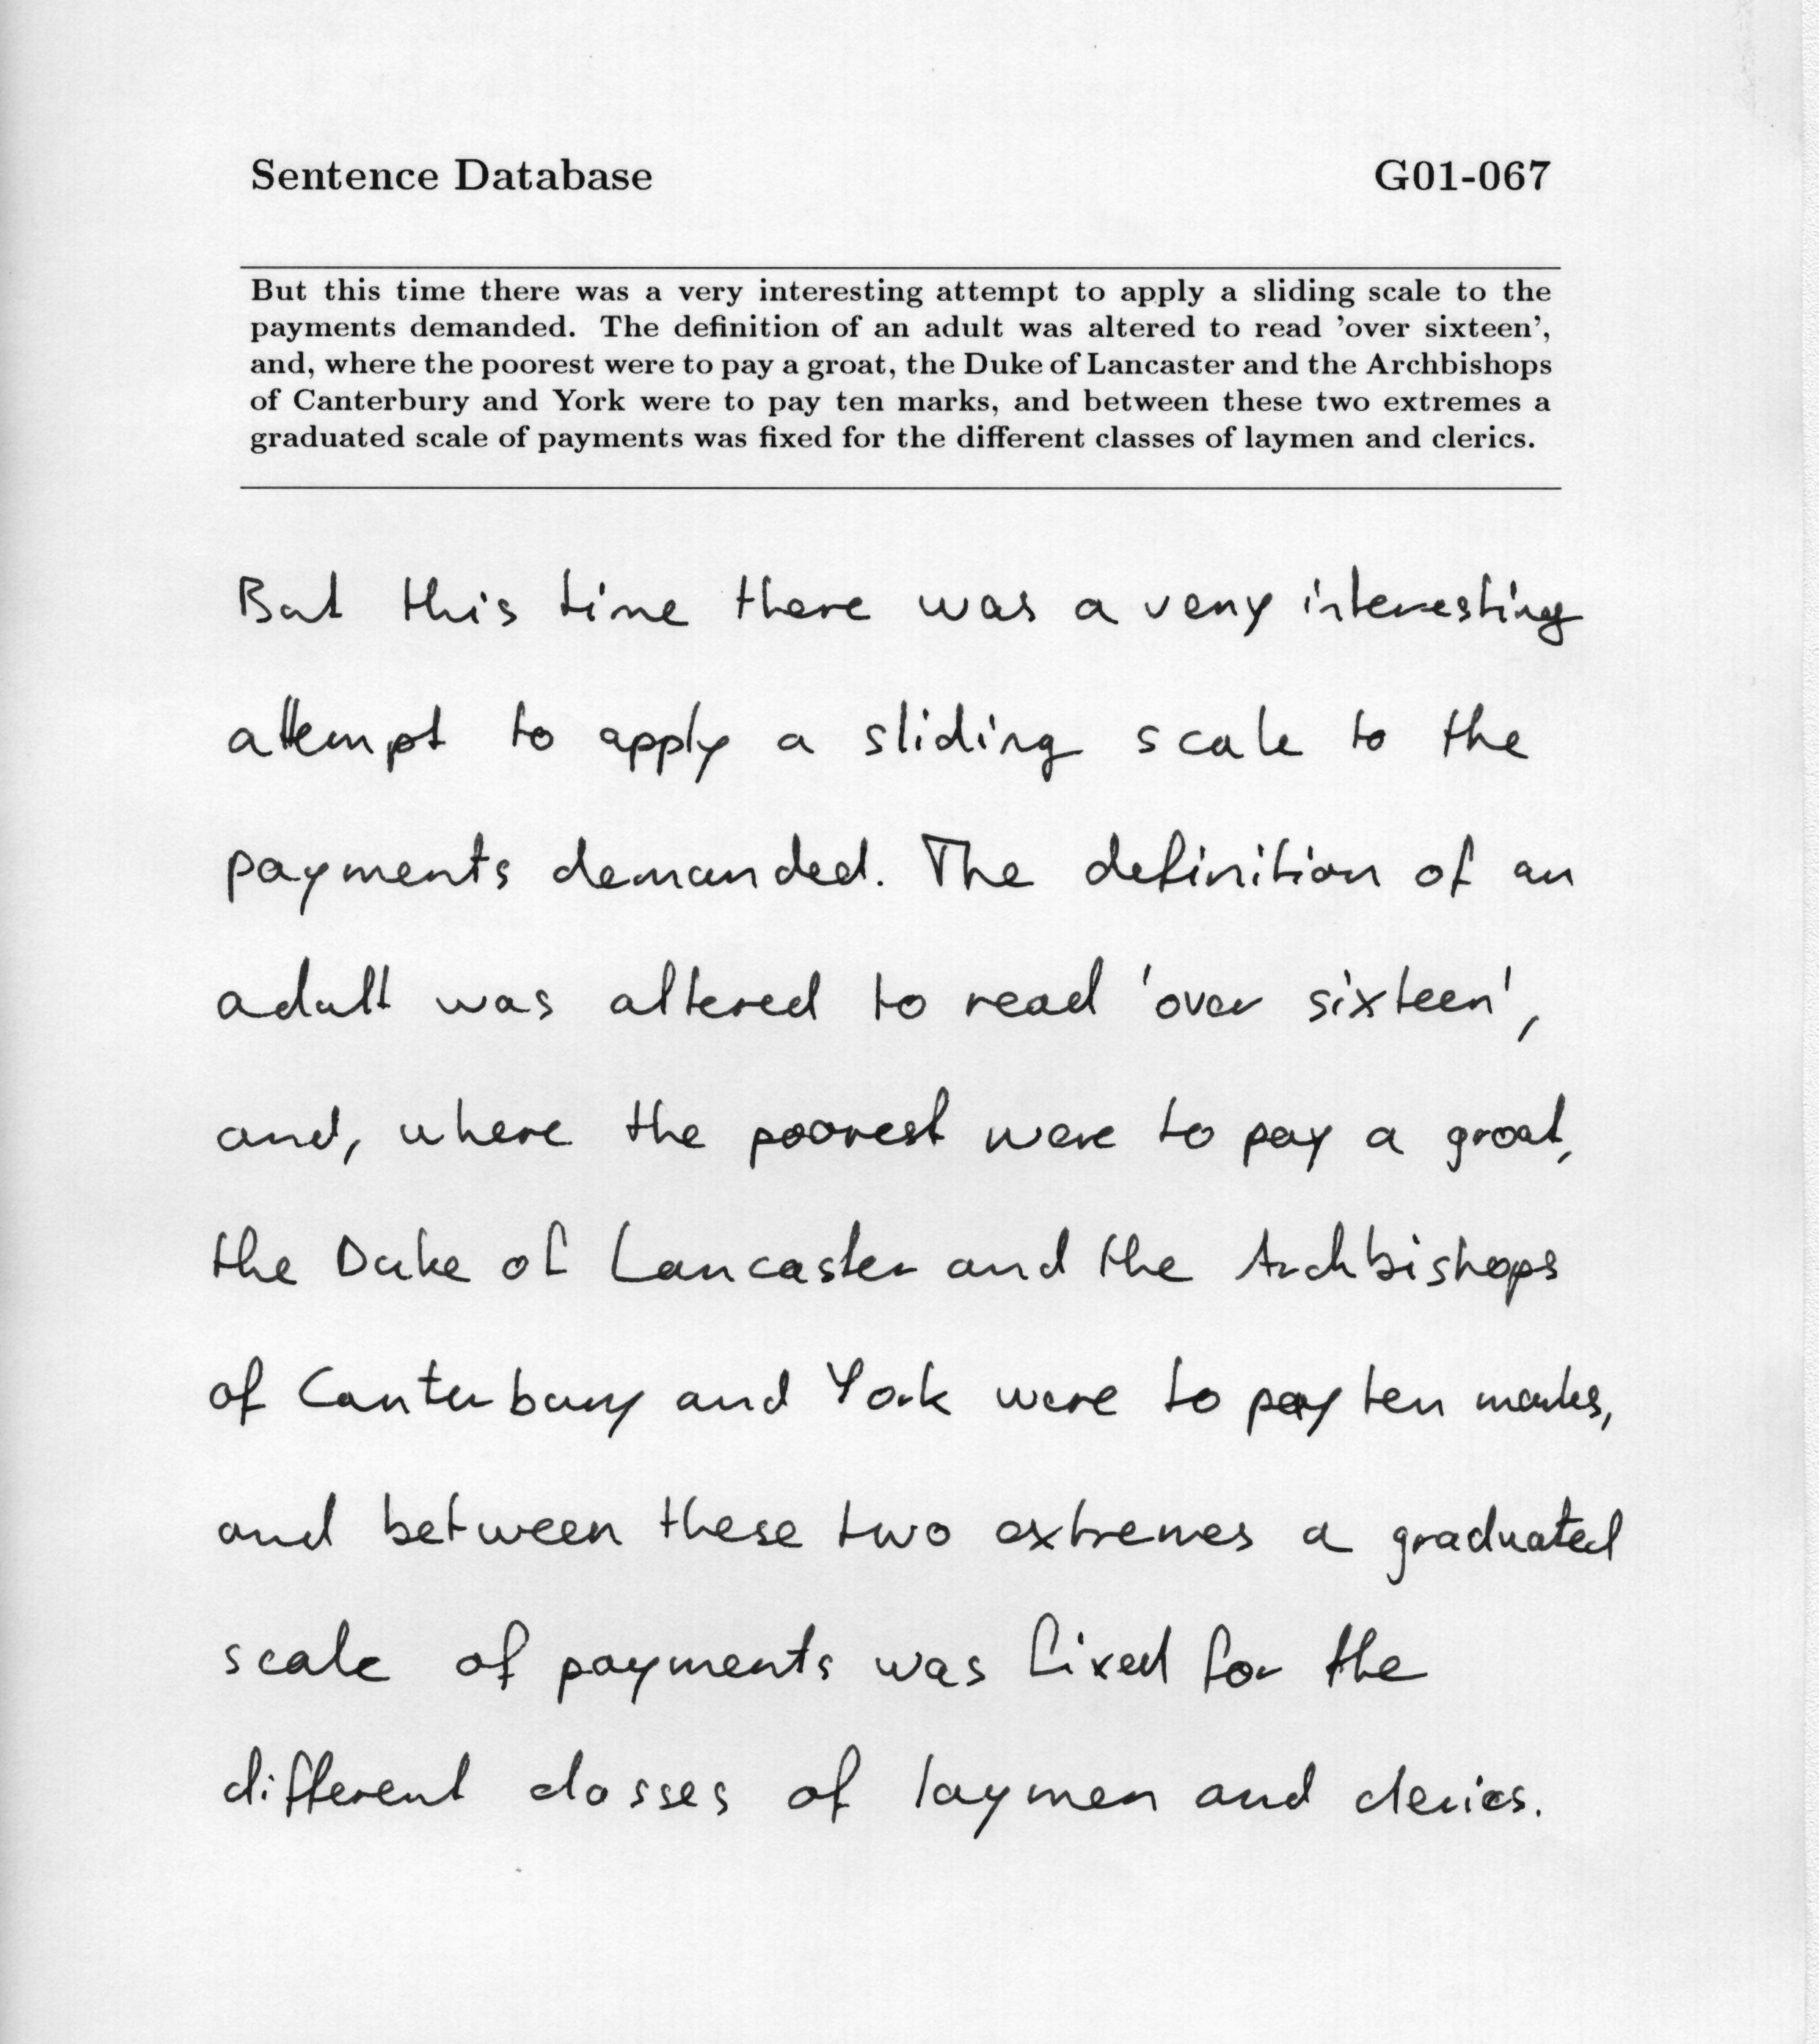 Sentence Database G01-067
But this time there was a very interesting attempt to apply a sliding scale to the
payments demanded. The definition of an adult was altered to read 'over sixteen',
and, where the poorest were to pay a groat, the Duke of Lancaster and the Archbishops
of Canterbury and York were to pay ten marks, and between these two extremes a
graduated scale of payments was fixed for the different classes of laymen and clerics.
But this time there was a very interesting
attempt to apply a sliding scale to the
payments demanded. The definition of an
adult was altered to read 'over sixteen',
and, where the poorest were to pay a groat,
the Duke of Lancaster and the Archbishops
of Canterbury and York were to pay ten marks,
and between these two extremes a graduated
scale of payments was fixed for the
different classes of laymen and clerics.